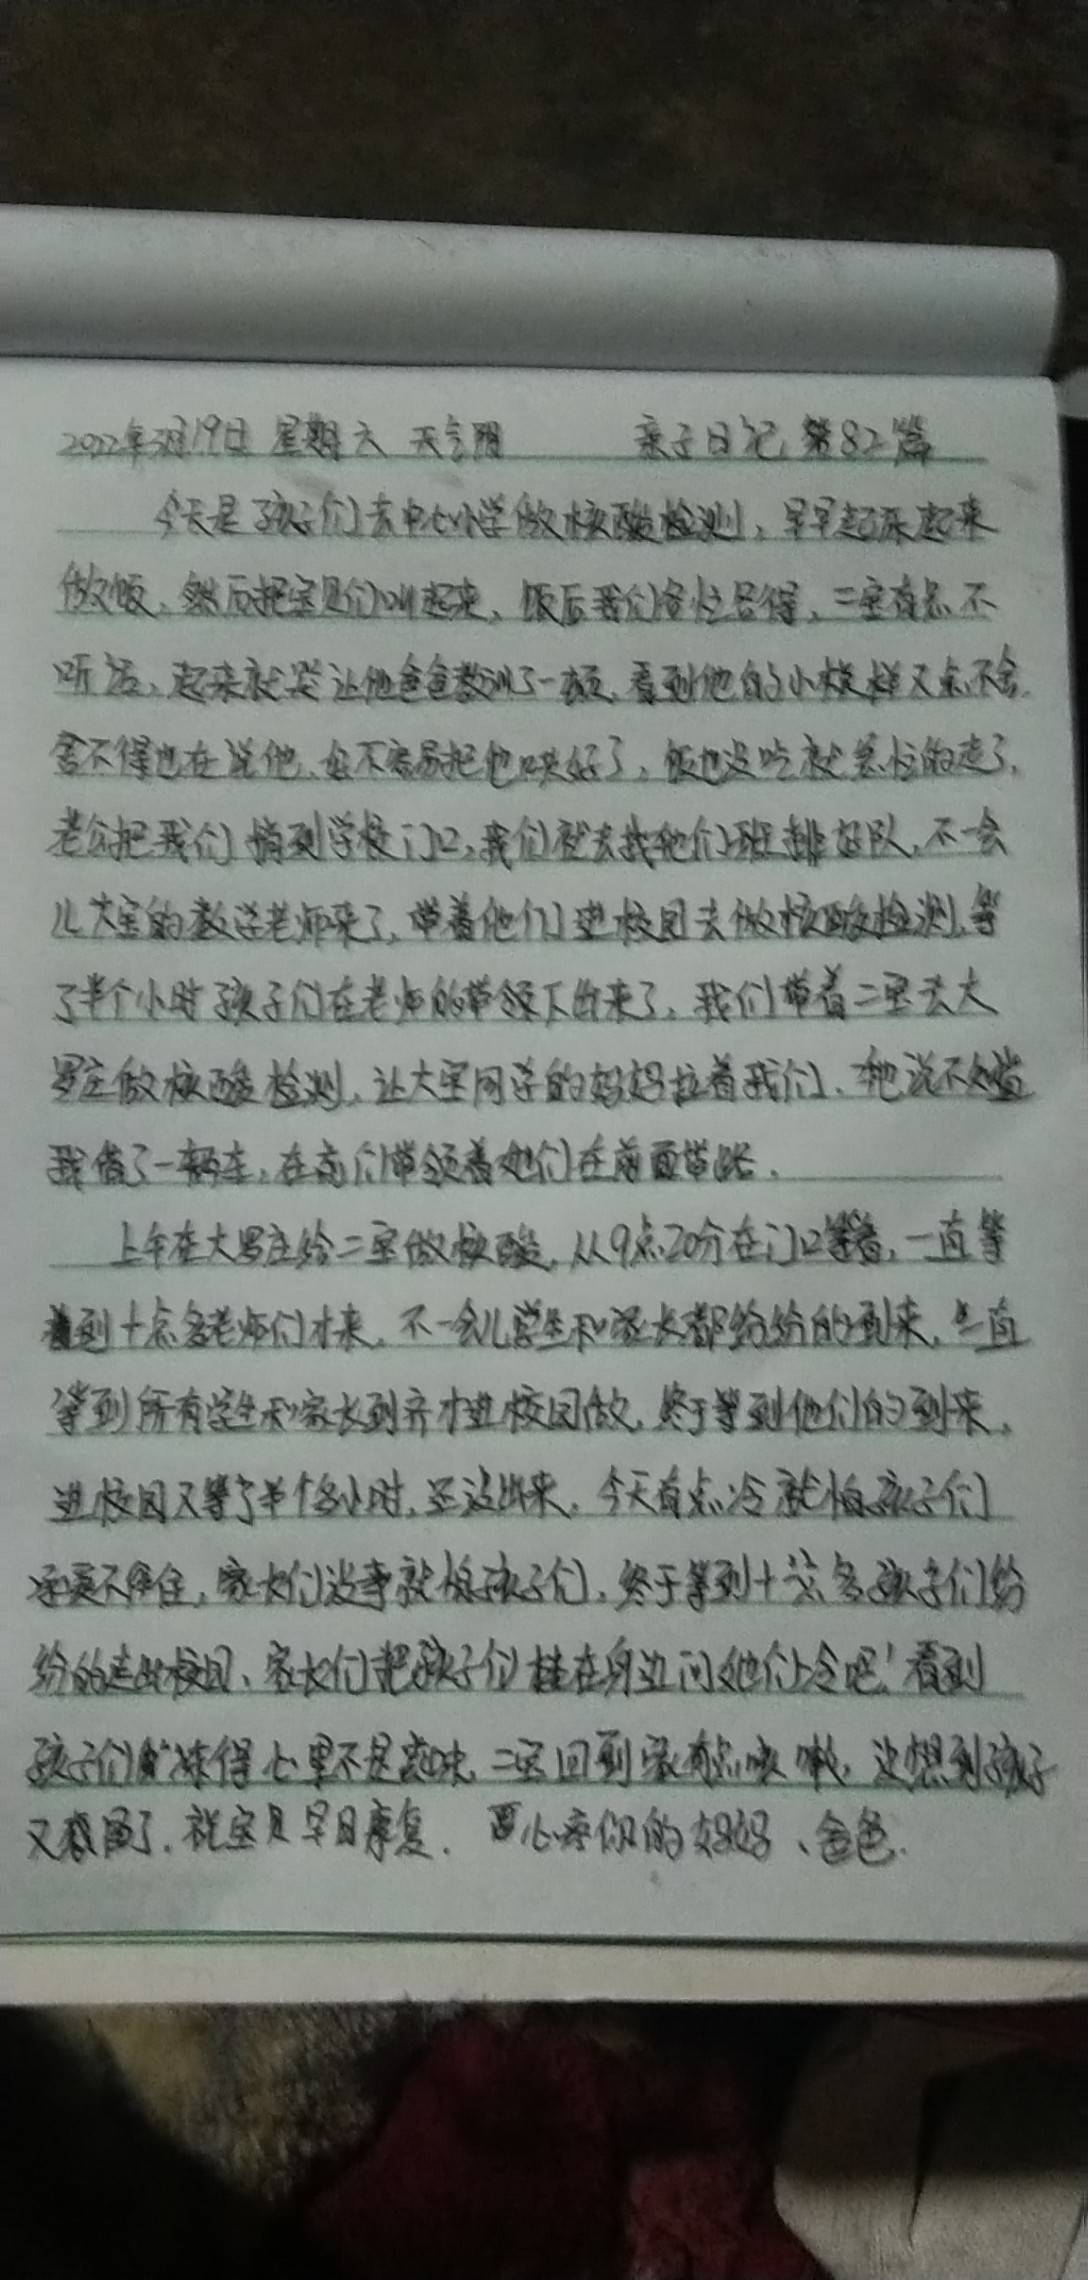 2022年3月19日 星期六 天气阴 亲子日记 第82篇
今天是孩子们去中心小学做核酸检测,早早起床起来
做饭,然后把宝贝们叫起来,饭后我们各忙各得,二宝有点不
听话,起来就哭让他爸爸教训了一顿,看到他的小模样又点不舍
舍不得也在说他,好不容易把他哄好了,饭也没吃就急忙的走了,
老公把我们捎到学校门口,我们就去找他们班排好队,不一会
儿大宝的数学老师来了,带着他们进校园去做核酸检测,等
了半个小时孩子们在老师的带领下出来了,我们带着二宝去大
罗庄做核酸检测,让大宝同学的妈妈拉着我们,她说不知道
我借了一辆车,在前们带领着她们在前面带路.
上午在大罗庄给二宝做核酸,从9点20分在门口等着,一直等
着到十点多老师们才来,不一会儿学生和家长都纷纷的到来,一直
等到所有学生和家长到齐才进校园做,终于等到他们的到来,
进校园又等了半个多小时,还没出来,今天有点冷就怕孩子们
承受不住,家长们没事就怕孩子们,终于等到十点多孩子们纷
纷的走出校园,家长们把孩子们 在身边问他们冷吧!看到
孩子们 冻得心里不是滋味,二宝回到家有点咳嗽,没想到孩子
又感冒了,祝宝贝早日康复. 心疼你的妈妈、爸爸.